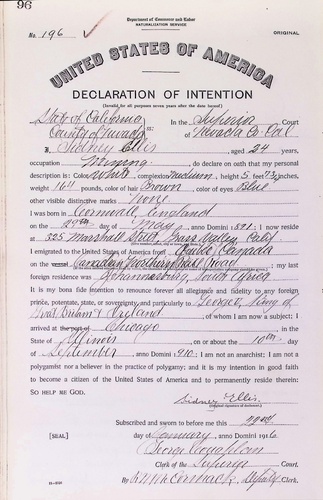 96
Department of Commerce and Labor
NATURALIZATION SERVICE
No. 196
ORIGINAL
UNITED STATES OF AMERICA
DECLARATION OF INTENTION
(Invalid for all purposes seven years after the date hereof)
State of California
County of Nevada
ss:
In the Superior Court
of Nevada Co. Cal
I, Sidney Ellis, aged 24 years,
occupation Mining, do declare on oath that my personal
description is: Color White, complexion Medium, height 5 feet 7 inches,
weight pounds, color of hair Brown, color of eyes Blue
other visible distinctive marks None
I was born in Cornwall, England
on the day of May, anno Domini 1891; I now reside
at 325 Marshall Street, Grass Valley, Calif.
I emigrated to the United States of America from Canada
on the Canadian Northern Rail Road; my last
foreign residence was Johannesburg, South Africa
It is my bona fide intention to renounce forever all allegiance and fidelity to any foreign
prince, potentate, state, or sovereignty, and particularly to George V, King of
Great Britain & Ireland, of whom I am now a subject; I
arrived at the port of Chicago, in the
State of Illinois, on or about the 10th day
of September, anno Domini 1910; I am not an anarchist; I am not a
polygamist nor a believer in the practice of polygamy; and it is my intention in good faith
to become a citizen of the United States of America and to permanently reside therein:
SO HELP ME GOD.
Sidney Ellis
(Original signature of declarant.)
Subscribed and sworn to before me this 22nd
[SEAL] day of January, anno Domini 1916
George
Clerk of the Superior Court.
By Deputy Clerk.